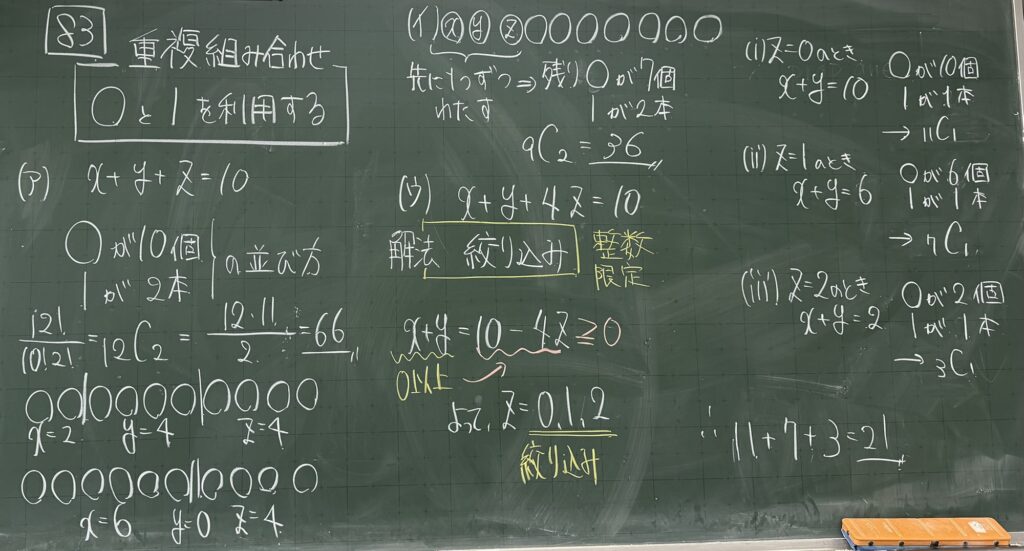 83
重複組み合わせ
○と|を利用する
(ア) x+y+z=10
○が10個
|が2本
の並び方
12!/10!2! = 12C2 = 12・11/2 = 66
○○|○○○○|○○○○
x=2 y=4 z=4
○○○○○○||○○○○
x=6 y=0 z=4
(イ) ⓧⓨⓩ○○○○○○○
先に1つずつ⇒残り○が7個
わたす |が2本
9C2 = 36
(ウ) x+y+4z=10
解法 絞り込み 整数
限定
x+y=10-4z≧0
0以上
よって、z=0,1,2
絞り込み
(i) z=0のとき ○が10個
x+y=10 |が1本
→ 11C1
(ii) z=1のとき ○が6個
x+y=6 |が1本
→ 7C1
(iii) z=2のとき ○が2個
x+y=2 |が1本
→ 3C1
∴ 11+7+3=21